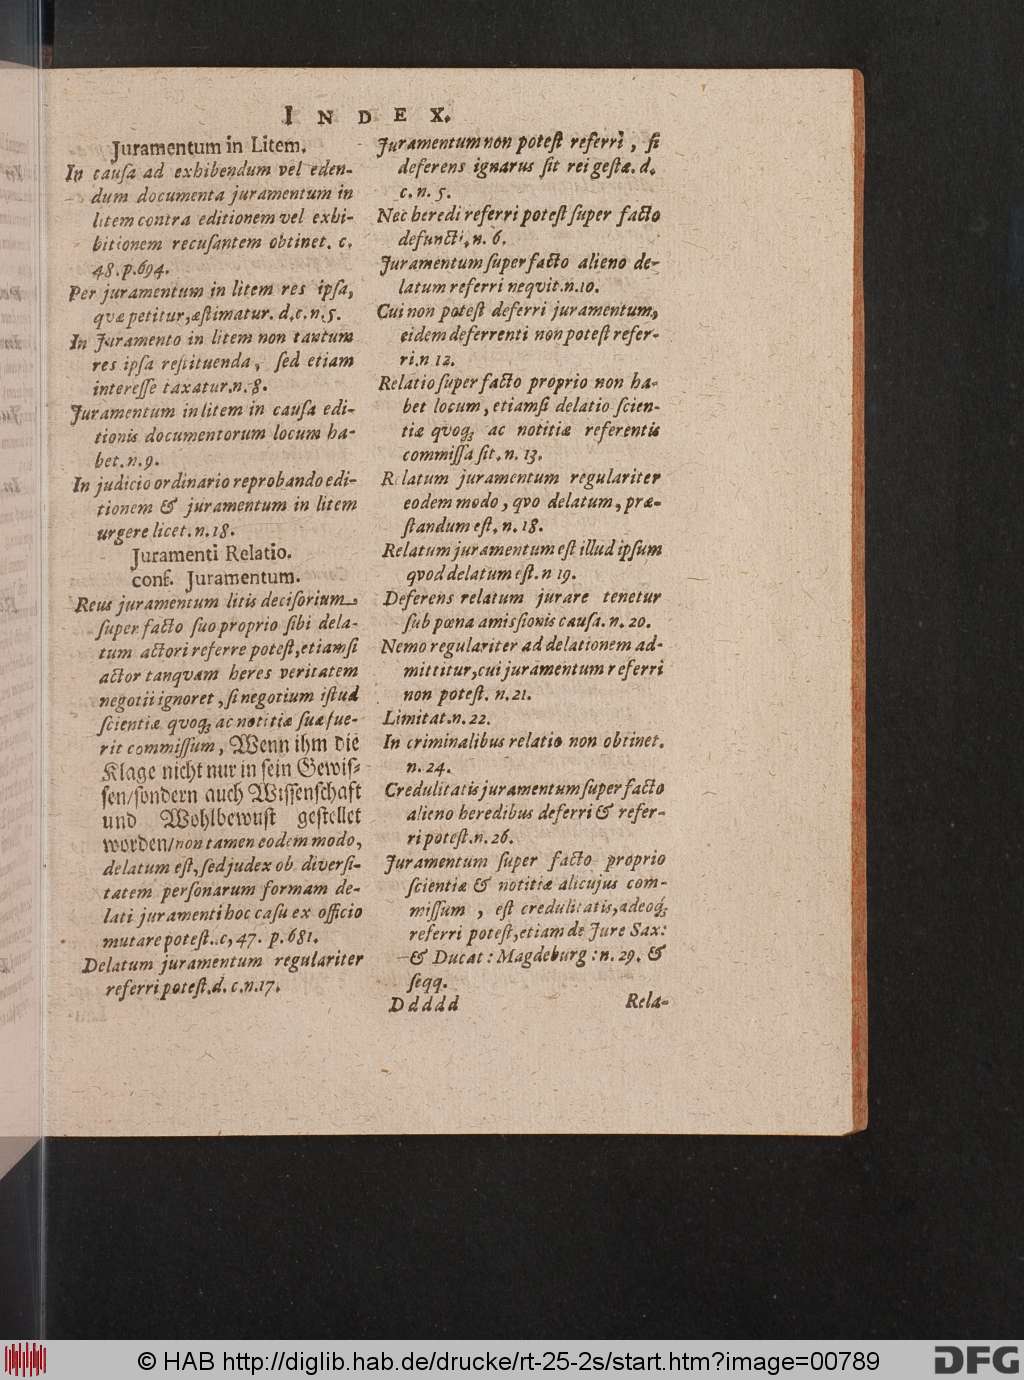 INDEX.
Juramentum in Litem.
In causa ad exhibendum vel eden-
dum documenta juramentum in
litem contra editionem vel exhi-
bitionem recusantem obtinet. c.
48. p. 694.
Per juramentum in litem res ipsa,
qvæ petitur, æstimatur. d. c. n. 5.
In Juramento in litem non tantum
res ipsa restituenda, sed etiam
interesse taxatur. n. 8.
Juramentum in litem in causa edi-
tionis documentorum locum ha-
bet. n. 9.
In judicio ordinario reprobando edi-
tionem & juramentum in litem
urgere licet. n. 18.
Juramenti Relatio.
conf. Juramentum.
Reus juramentum litis decisorium,
super facto suo proprio sibi dela-
tum actori referre potest, etiamsi
actor tanqvam heres veritatem
negotii ignoret, si negotium istud
scientiæ qvoq; ac notitiæ suæ fue-
rit commissum, Wenn ihm die
Klage nicht nur in sein Gewis-
sen/sondern auch Wissenschaft
und Wohlbewust gestellet
worden/non tamen eodem modo,
delatum est, sed judex ob diversi-
tatem personarum formam de-
lati juramenti hoc casu ex officio
mutare potest. c, 47. p. 681.
Delatum juramentum regulariter
referri potest. d. c. n. 17.
Juramentum non potest referri, si
deferens ignarus sit rei gestæ. d.
c. n. 5.
Nec heredi referri potest super facto
defuncti, n. 6.
Juramentum super facto alieno de-
latum referri neqvit. n. 10.
Cui non potest deferri juramentum,
eidem deferrenti non potest refer-
ri. n 12.
Relatio super facto proprio non ha-
bet locum, etiamsi delatio scien-
tiæ qvoq; ac notitiæ referentis
commissa sit. n. 13.
Relatum juramentum regulariter
eodem modo, qvo delatum, præ-
standum est, n. 18.
Relatum juramentum est illud ipsum
qvod delatum est. n 19.
Deferens relatum jurare tenetur
sub pœna amissionis causa. n. 20.
Nemo regulariter ad delationem ad-
mittitur, cui juramentum referri
non potest. n. 21.
Limitat. n. 22.
In criminalibus relatio non obtinet.
n. 24.
Credulitatis juramentum super facto
alieno heredibus deferri & refer-
ri potest. n. 26.
Juramentum super facto proprio
scientiæ & notitiæ alicujus com-
missum, est credulitatis, adeoq;
referri potest, etiam de Jure Sax:
& Ducat: Magdeburg: n. 29. &
seqq.
Ddddd Rela-
© HAB http://diglib.hab.de/drucke/rt-25-2s/start.htm?image=00789
DFG